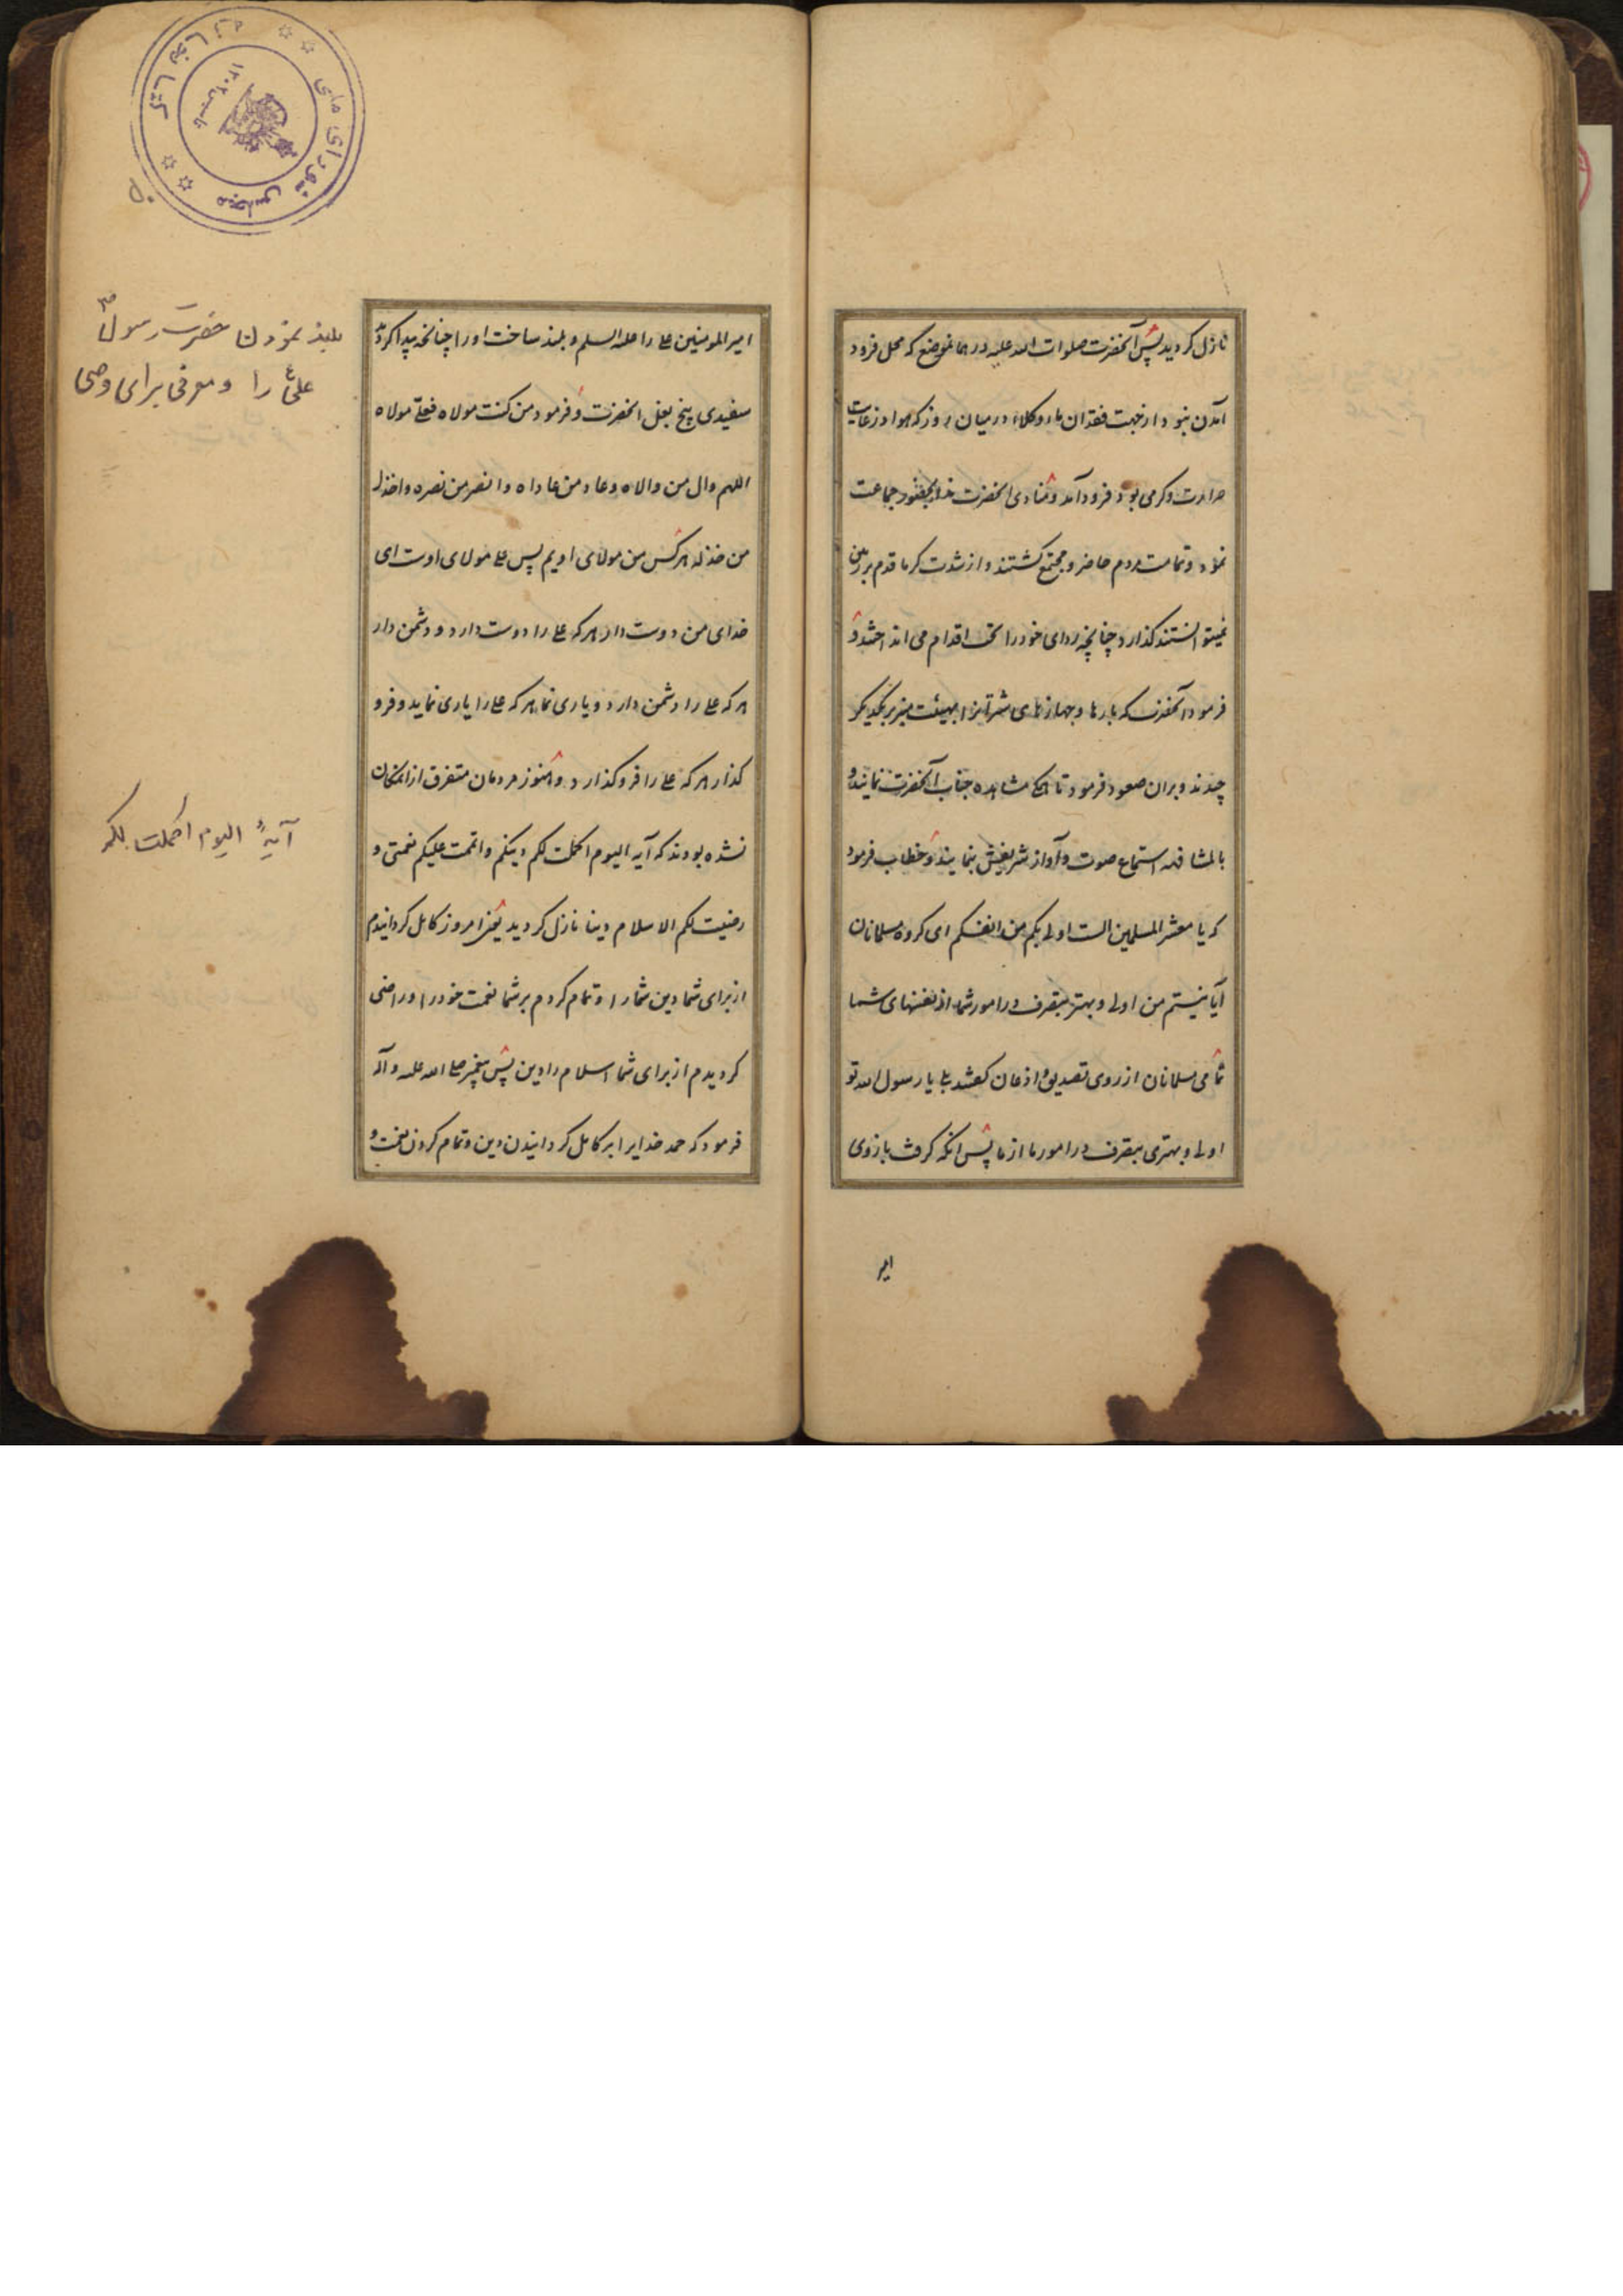 نازل کردید پس آنحضرت صلوات الله علیه در همانموضع که محل فرود
آمدن نبود از جهت فقدان ماء و کلاء در میان روز که هوا در غایت
حرارت و کرمی بود فرود آمد و منادی آنحضرت جماعت
نمود و تمامت مردم حاضر و مجتمع کشتند و از شدت کرما قدم بر زمین
نمیتوانستند کذارد چنانچه ردای خود را تحت اقدام می انداختند و
فرمود آنحضرت که بارها و جهازهای شترانرا بهیئت منبر بر یکدیکر
چیدند و بران صعود فرمود تا همکی مشاهده جناب آنحضرت نمایند و
بالمشافهه استماع صوت و آواز شریفش بنمایند و خطاب فرمود
که یا معشر المسلمین الست اولی بکم من انفسکم ای کروه مسلمانان
آیا نیستم من اولی و بهتر بتصرف در امور شما از نفسهای شما
تمامی مسلمانان از روی تصدیق و اذعان کفتند بلی یا رسول الله تو
اولی و بهتری بتصرف در امور ما از ما پس آنکه کرفت بازوی
امیر
امیر المومنین علی را علیه السلم و بلند ساخت او را چنانچه پیدا کردید
سفیدی بیخ بغل آنحضرت و فرمود من کنت مولاه فعلی مولاه
اللهم وال من والاه و عاد من عاداه و انصر من نصره و اخذل
من خذله هر کس من مولای اویم پس علی مولای اوست ای
خدای من دوست دار هر که علی را دوست دارد و دشمن دار
هر که علی را دشمن دارد و یاری نما هر که علی را یاری نماید و فرو
کذار هر که علی را فرو کذارد و هنوز مردمان متفرق از انمکان
نشده بودند که آیه الیوم اکملت لکم دینکم و اتممت علیکم نعمتی و
رضیت لکم الاسلام دینا نازل کردید یعنی امروز کامل کردانیدم
از برای شما دین شما را و تمام کردم بر شما نعمت خود را و راضی
کردیدم از برای شما اسلام را دین پس پیغمبر صلی الله علیه و آله
فرمود که حمد خدایرا بر کامل کردانیدن دین و تمام کردن نعمت و
بلند نمودن حضرت رسول ص
علی ع را و معرفی برای وصی
آیهٔ الیوم اکملت لکم
کتابخانه
مجلس شورای ملی